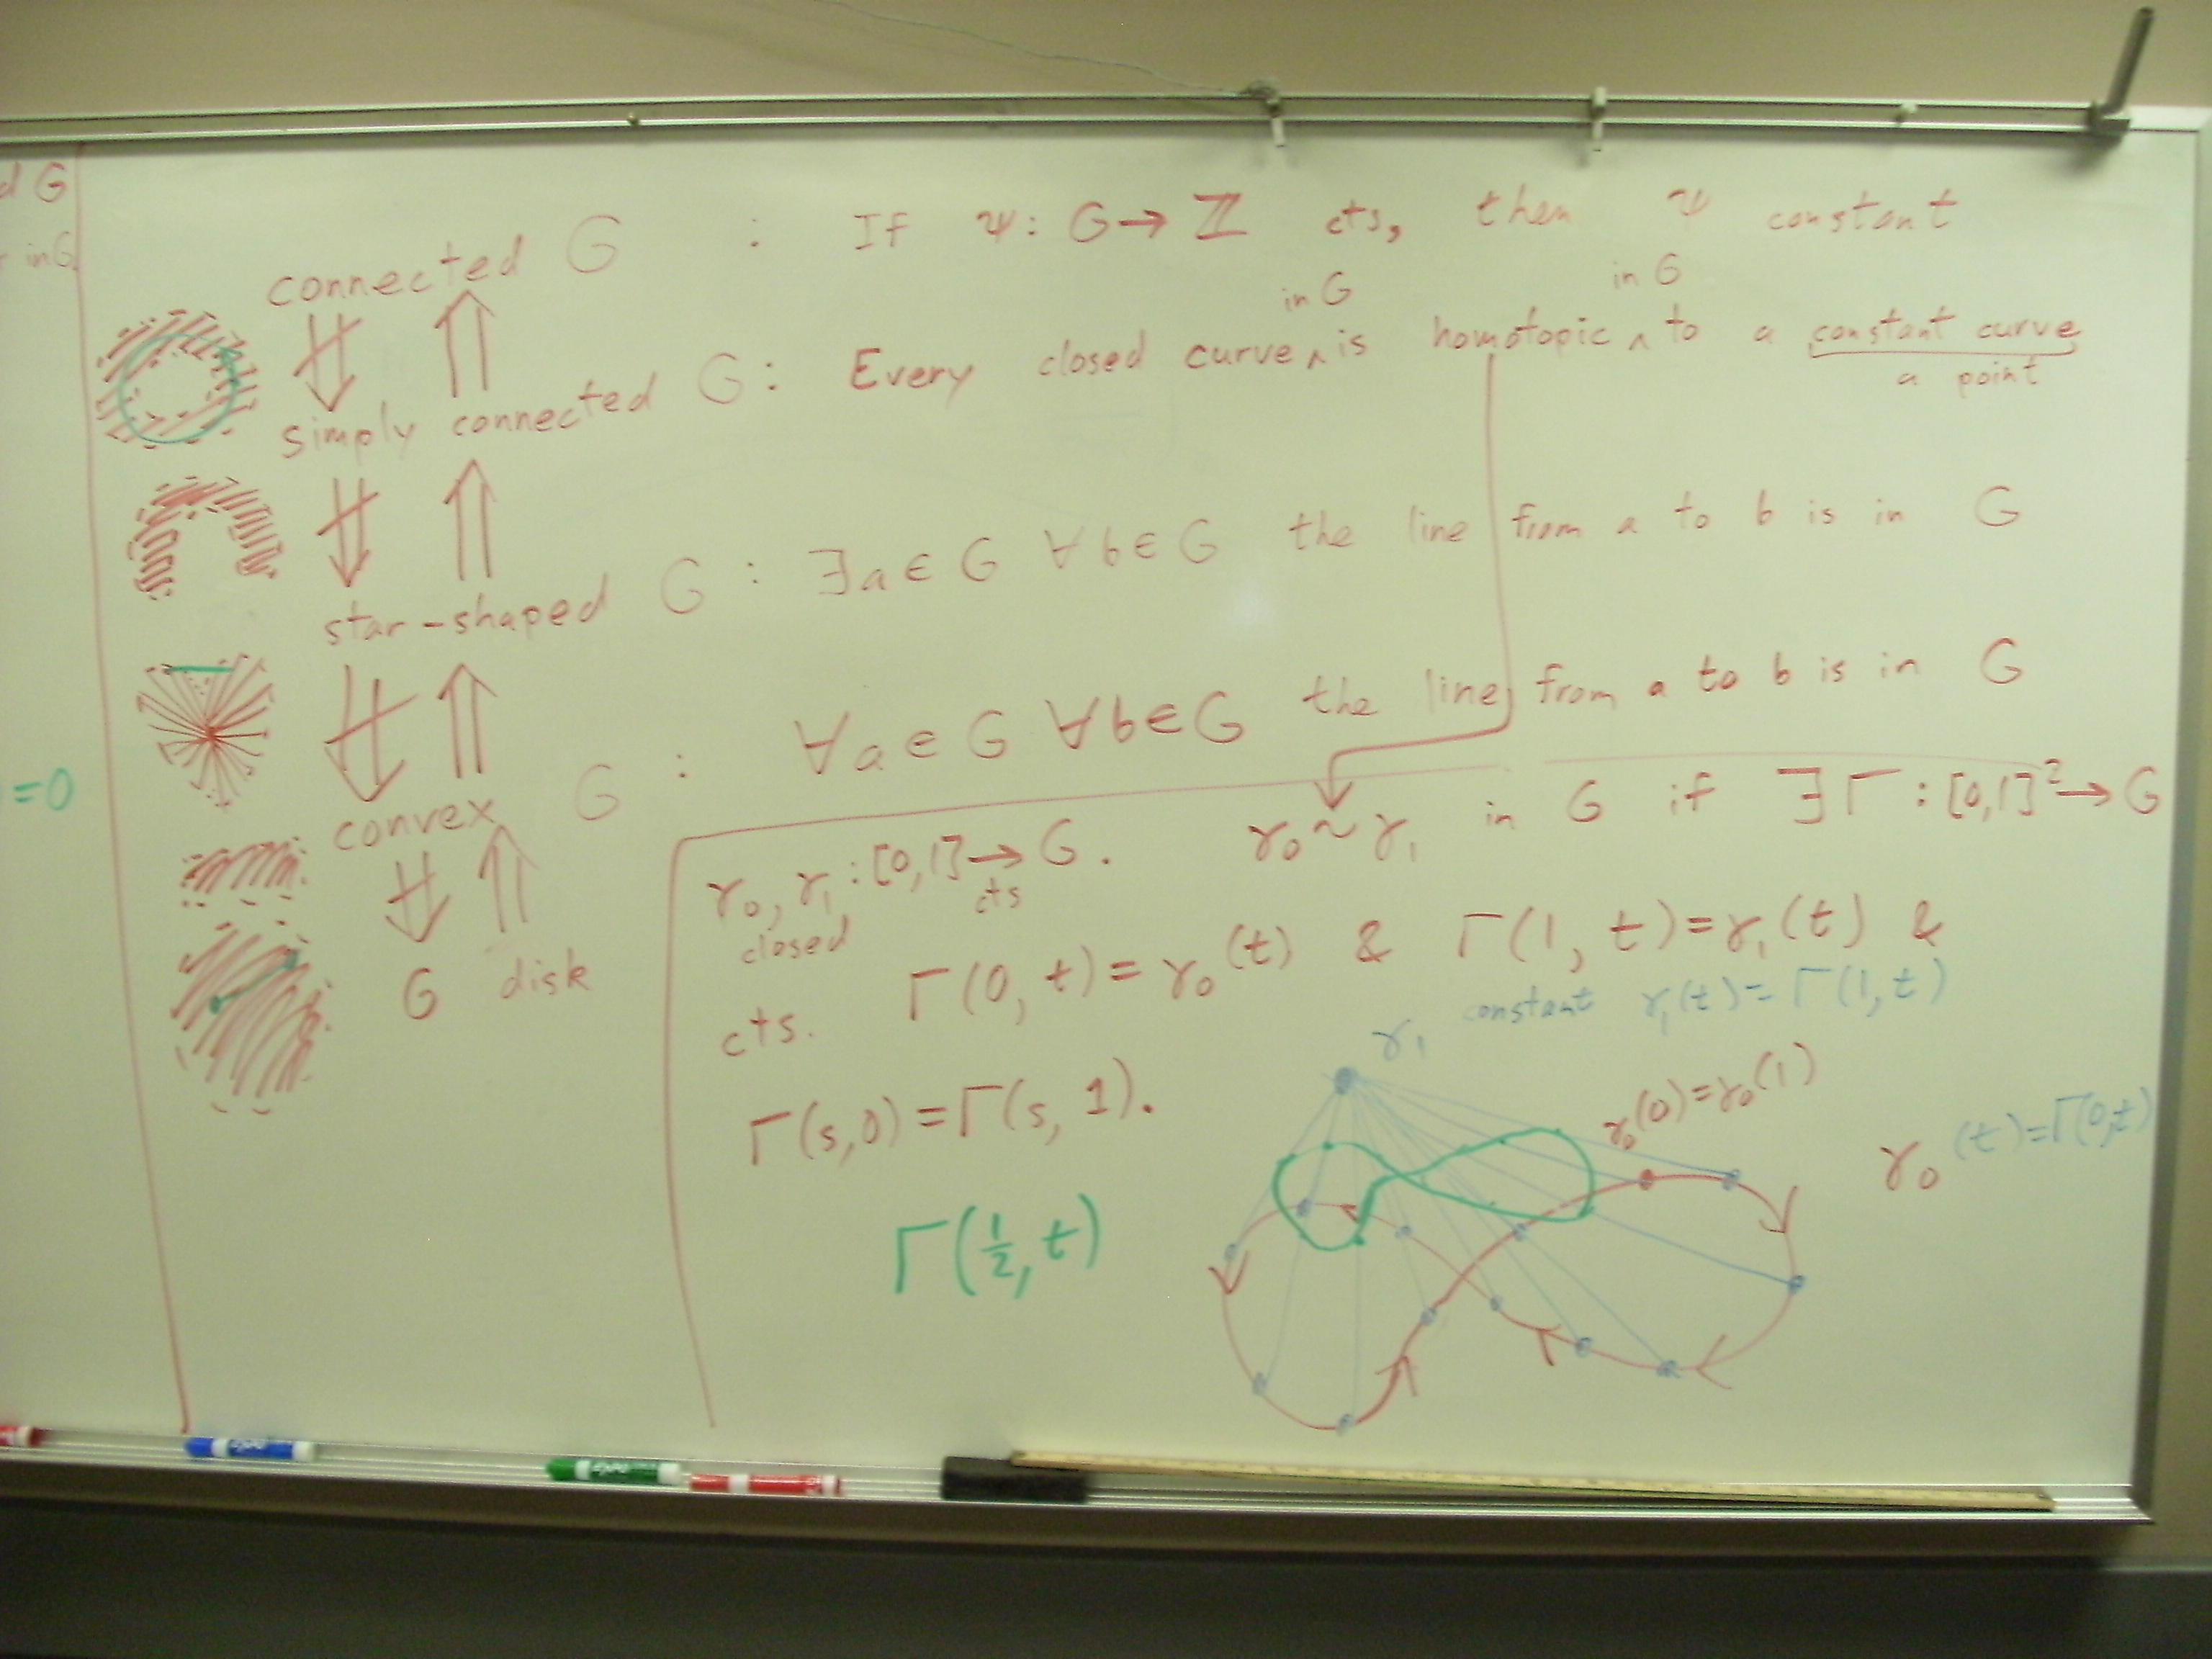 d G
in G
=0
connected G : If ψ: G → ℤ cts, then ψ constant
in G in G
simply connected G : Every closed curve ∧ is homotopic ∧ to a constant curve
a point
star-shaped G : ∃a ∈ G ∀b ∈ G the line from a to b is in G
convex G : ∀a ∈ G ∀b ∈ G the line from a to b is in G
G disk
γ₀, γ₁ : [0,1] → G. γ₀ ~ γ₁ in G if ∃ Γ : [0,1]² → G
closed cts
cts. Γ(0, t) = γ₀(t) & Γ(1, t) = γ₁(t) &
γ₁ constant γ₁(t) = Γ(1, t)
Γ(s,0) = Γ(s, 1).
γ₀(0) = γ₀(1)
γ₀(t) = Γ(0,t)
Γ(½, t)
expo
expo